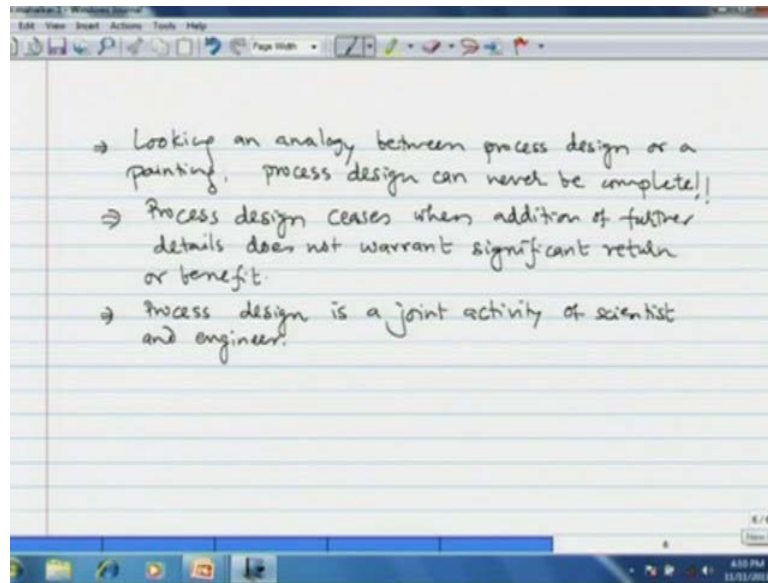 Windows Journal
Edit View Insert Actions Tools Help
Page Width
⇒ Looking an analogy between process design or a
painting, process design can never be complete!!
⇒ Process design ceases when addition of further
details does not warrant significant return
or benefit.
⇒ Process design is a joint activity of scientist
and engineer.
6
4:10 PM